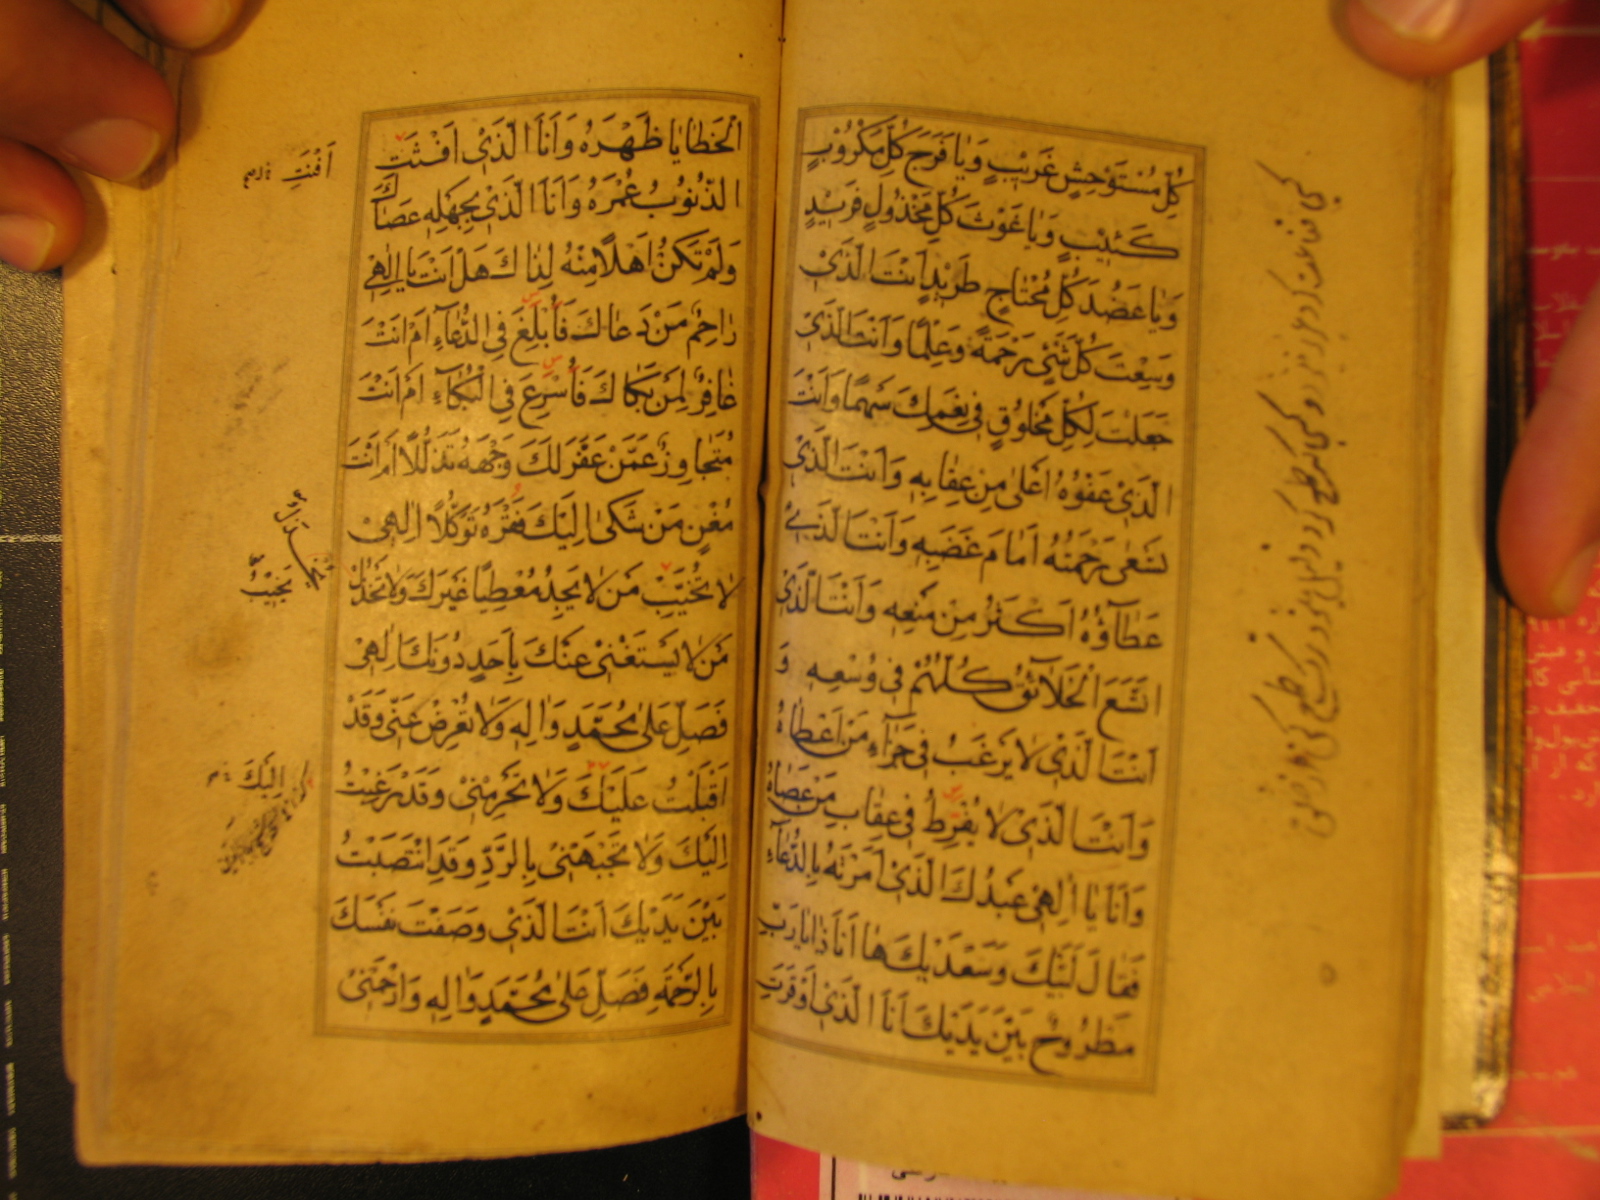 كُلِّ مُسْتَوْحِشٍ غَرِيْبٍ وَيٰا فَرَجَ كُلِّ مَكْرُوْبٍ
كَئِيْبٍ وَيٰا غَوْثَ كُلِّ مَخْذُولٍ فَرِيْدٍ
وَيٰا عَضُدَ كُلِّ مُحْتٰاجٍ طَرِيْدٍ اَنْتَ الَّذَيْ
وَسِعْتَ كُلَّ شَيْءٍ رَحْمَةً وَعِلْمًا وَاَنْتَ الَّذَيْ
جَعَلْتَ لِكُلِّ مَخْلُوْقٍ فِي نِعَمِكَ سَهْمًا وَاَنْتَ
الَّذَيْ عَفْوُهُ اَعْلىٰ مِنْ عِقٰابِهِ وَاَنْتَ الَّذَيْ
تَسْعىٰ رَحْمَتُهُ اَمٰامَ غَضَبِهِ وَاَنْتَ الَّذَيْ
عَطٰآؤُهُ اَكْثَرُ مِنْ مَنْعِهِ وَاَنْتَ الَّذَيْ
اتَّسَعَ الْخَلٰآئِقُ كُلُّهُمْ فِي وُسْعِهِ وَ
اَنْتَ الَّذَيْ لٰا يَرْغَبُ فِي جَزٰآءِ مَنْ اَعْطٰاهُ
وَاَنْتَ الَّذَيْ لٰا يُفْرِطُ فِي عِقٰابِ مَنْ عَصٰاهُ
وَاَنَا يٰا اِلٰهِيْ عَبْدُكَ الَّذَيْ اَمَرْتَهُ بِالدُّعٰآءِ
فَقٰالَ لَبَّيْكَ وَسَعْدَيْكَ هٰا اَنَا ذٰا يٰا رَبِّ
مَطْرُوْحٌ بَيْنَ يَدَيْكَ اَنَا الَّذَيْ اَوْقَرَتِ
الْخَطٰايٰا ظَهْرَهُ وَاَنَا الَّذَيْ اَفْنَتْ
الذُّنُوْبُ عُمْرَهُ وَاَنَا الَّذَيْ بِجَهْلِهِ عَصٰاكَ
وَلَمْ تَكُنْ اَهْلًا مِنْهُ لِذٰاكَ هَلْ اَنْتَ يٰا اِلٰهِيْ
رٰاحِمٌ مَنْ دَعٰاكَ فَاُبْلِغَ فِي الدُّعٰآءِ اَمْ اَنْتَ
غٰافِرٌ لِمَنْ بَكٰاكَ فَاُسْرِعَ فِي الْبُكٰآءِ اَمْ اَنْتَ
مُتَجٰاوِزٌ عَمَّنْ عَفَّرَ لَكَ وَجْهَهُ تَذَلُّلًا اَمْ اَنْتَ
مُغْنٍ مَنْ شَكىٰ اِلَيْكَ فَقْرَهُ تَوَكُّلًا اِلٰهِيْ
لٰا تُخَيِّبْ مَنْ لٰا يَجِدُ مُعْطِيًا غَيْرَكَ وَلٰا تَخْذُلْ
مَنْ لٰا يَسْتَغْنِي عَنْكَ بِاَحَدٍ دُونَكَ اِلٰهِيْ
فَصَلِّ عَلىٰ مُحَمَّدٍ وَاٰلِهِ وَلٰا تُعْرِضْ عَنِّي وَقَدْ
اَقْبَلْتُ عَلَيْكَ وَلٰا تَحْرِمْنِي وَقَدْ رَغِبْتُ
اِلَيْكَ وَلٰا تَجْبَهْنِي بِالرَّدِّ وَقَدِ انْتَصَبْتُ
بَيْنَ يَدَيْكَ اَنْتَ الَّذَيْ وَصَفْتَ نَفْسَكَ
بِالرَّحْمَةِ فَصَلِّ عَلىٰ مُحَمَّدٍ وَاٰلِهِ وَارْحَمْنِي
اَفْنَتِ
اِلَيْكَ